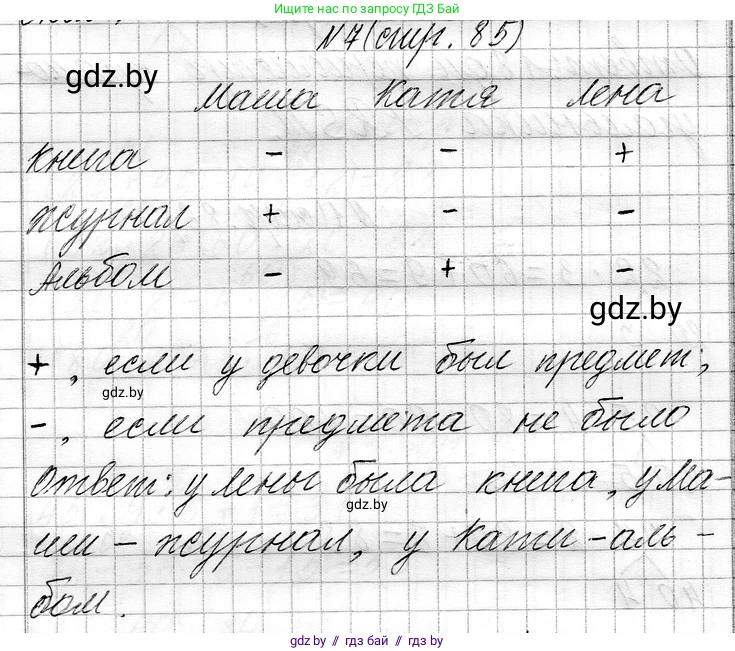 Ищите нас по запросу ГДЗ Бай
№7(стр. 85)
gdz.by
Маша Катя Лена
книга - - +
журнал + - -
Альбом - + -
gdz.by
+, если у девочки был предмет;
gdz.by
-, если предмета не было
Ответ: у Лены была книга, у Ма-
gdz.by
ши - журнал, у Кати - аль-
бом.
gdz.by // гдз бай // гдз by